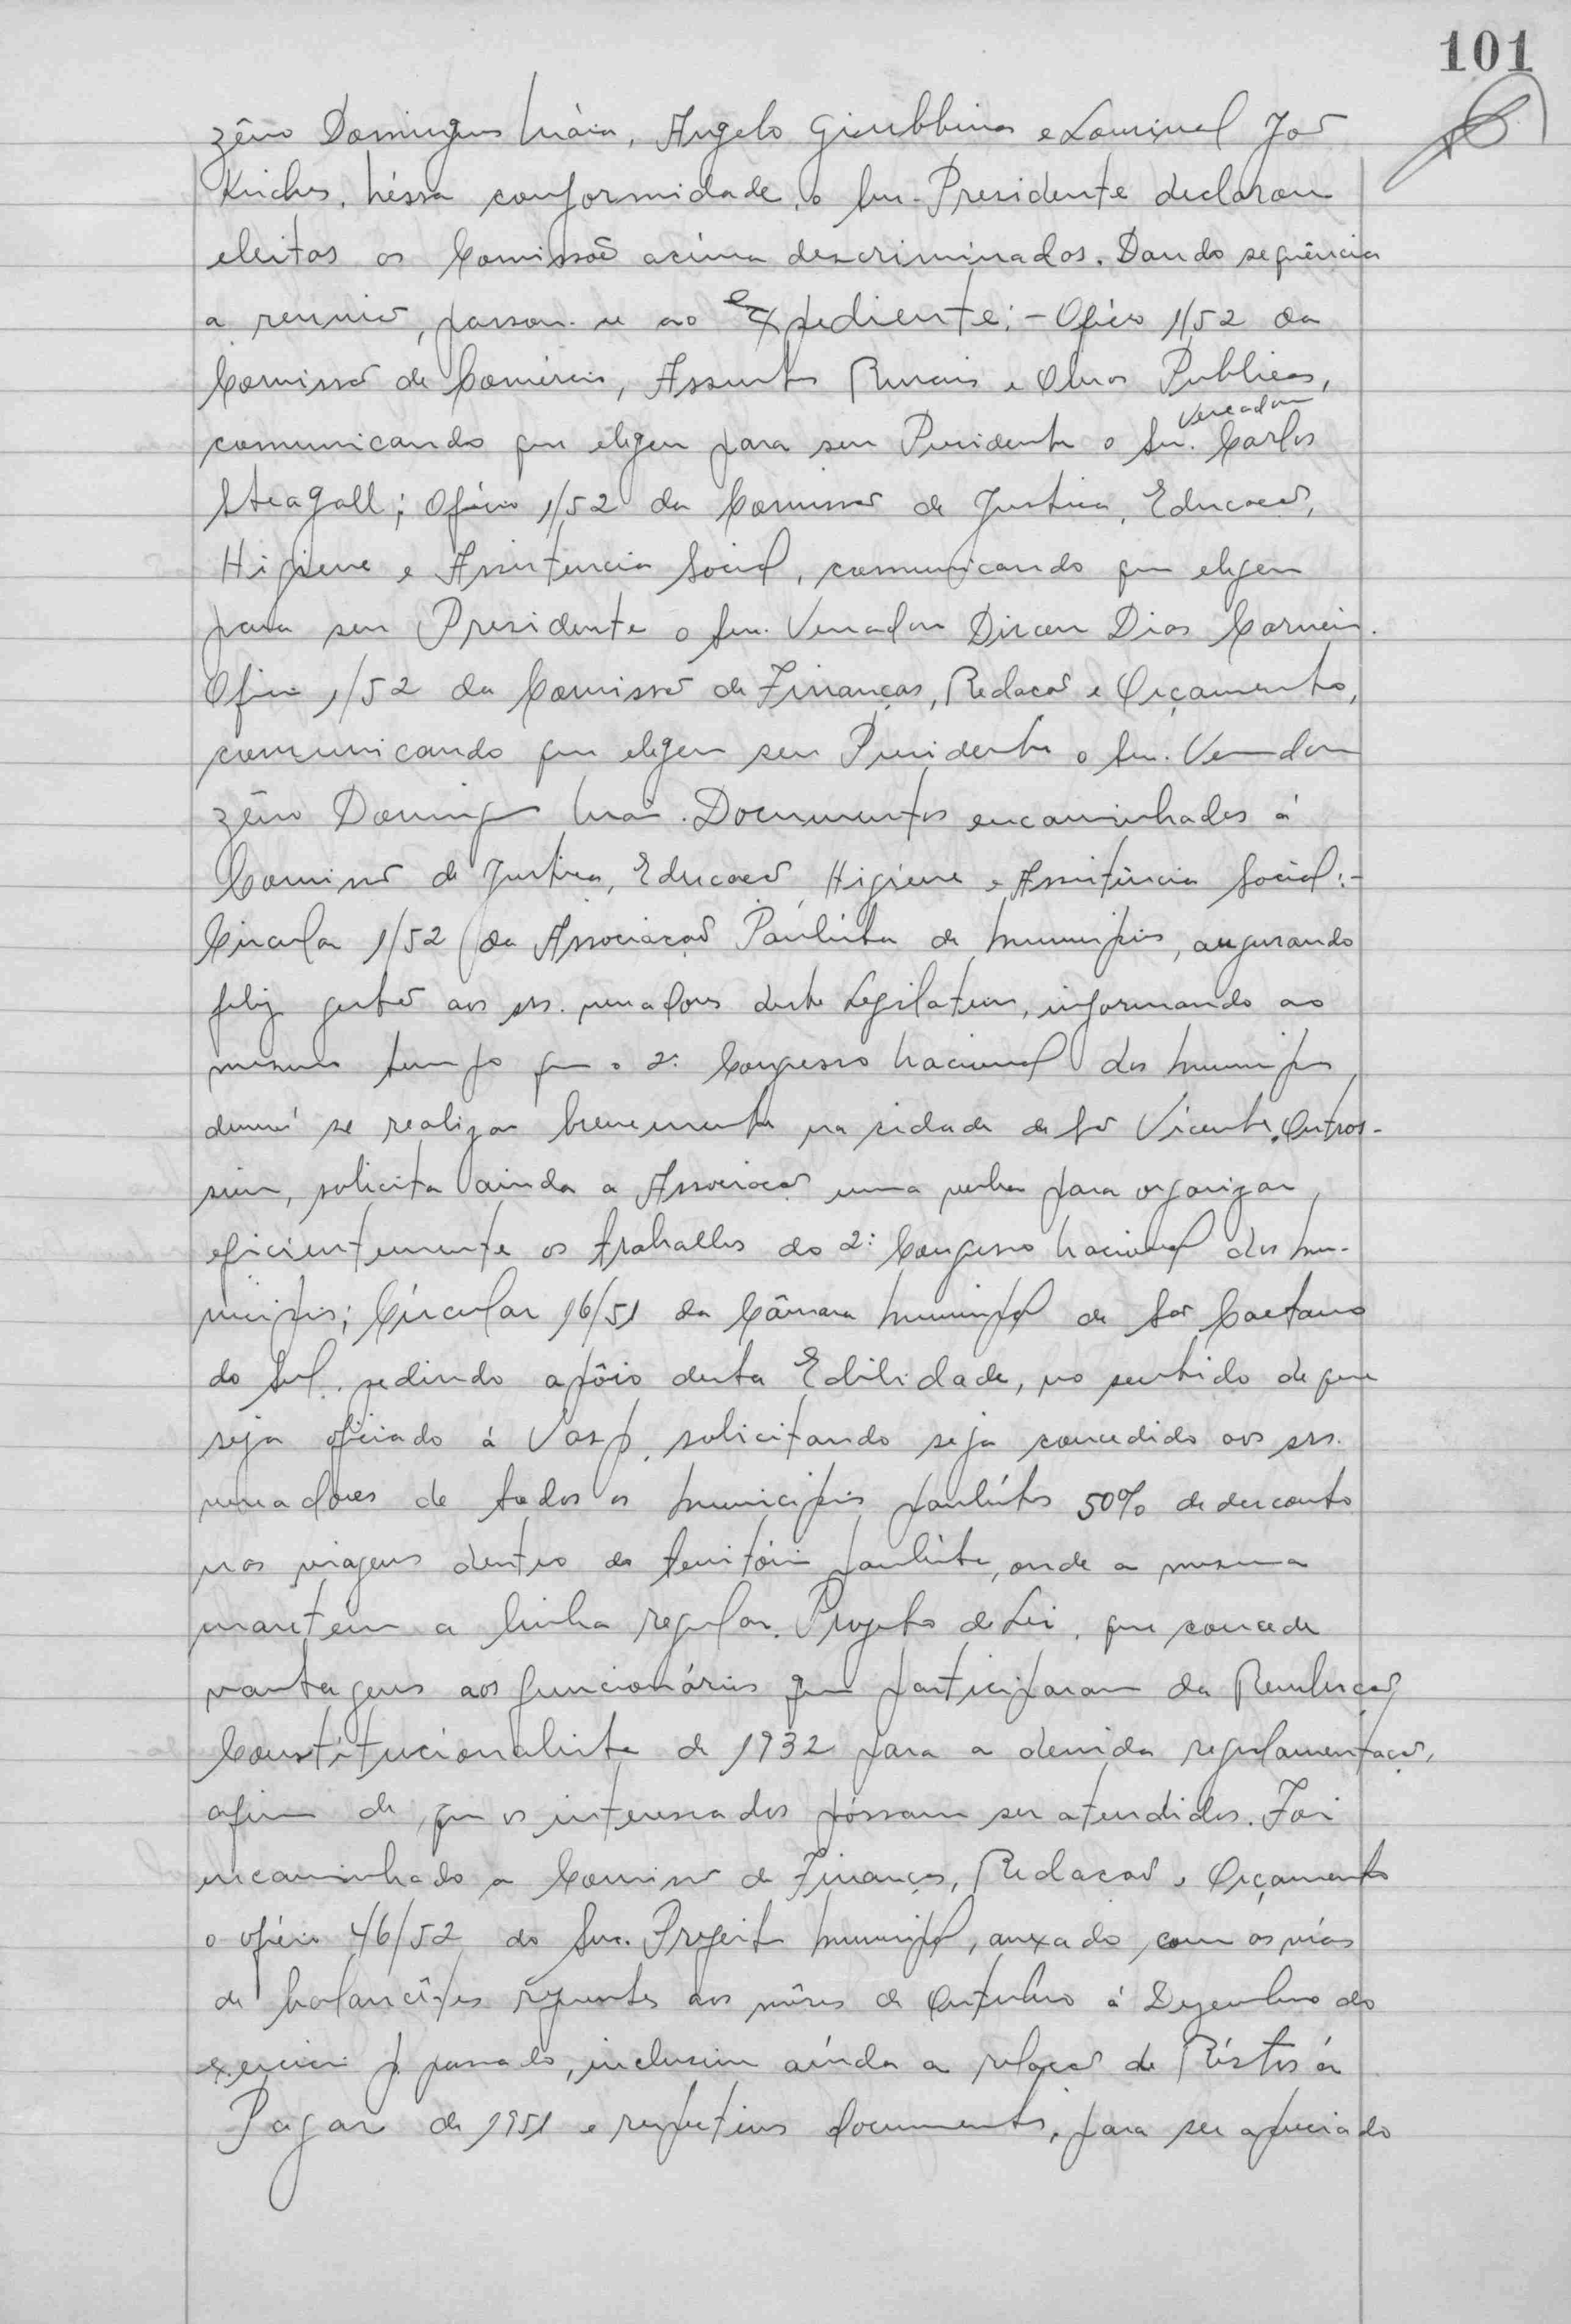 101
zêno Domingues Máia, Angelo Giubbina e Lourival José
Kirches. Néssa conformidade, o Snr. Presidente declarou
eleitas as Comissões acima descriminados. Dando sequência
a reunião, passou-se ao expediente:- Ofício 1/52 da
Comissão de Comércio, Assuntos Rurais e Obras Publicas,
comunicando que elegeu para seu Presidente o Snr. Vereador Carlos
Steagall; Ofício 1/52 da Comissão de Justiça, Educação,
Higiene e Assistencia Social, comunicando que elegeu
para seu Presidente o Snr. Vereador Dirceu Dias Carneiro.
Oficio 1/52 da Comissão de Finanças, Redação e Orçamento,
comunicando que elegeu seu Presidente o Snr. Vereador
zêno Domingues Maia. Documentos encaminhados á
Comissão de Justiça, Educação, Higiene e Assistência Social:-
Circular 1/52 da Associação Paulista de Municipios, augurando
feliz gestão aos srs. vereadores deste Legislativo, informando ao
mesmo tempo que o 2º Congresso Nacional dos Municipios,
deverá se realizar brevemente na cidade de São Vicente. Outros-
sim, solicita ainda a Associação uma verba para organizar
eficientemente os trabalhos do 2º Congresso Nacional dos Mu-
nicipios; Circular 16/51 da Câmara Municipal de São Caetano
do Sul, pedindo apôio desta Edilidade, no sentido de que
seja oficiado á Vasp, solicitando seja concedido aos srs.
vereadores de todos os municipios paulistas 50% de desconto
nas viagens dentro do território paulista, onde a mesma
mantem a linha regular. Projeto de Lei, que concede
vantagens aos funcionários que participaram da Revolução
Constitucionalista de 1932 para a devida regulamentação,
afim de que os interessados póssam ser atendidos. Foi
encaminhado a Comissão de Finanças, Redação e Orçamento
o ofício 46/52 do Snr. Prefeito Municipal, anexado com as vias
de balancêtes referentes aos mêses de Outubro á Dezembro do
exercicio p. passado, inclusive aínda a relação de Réstos á
Pagar de 1951 e respectivos documentos, para ser apreciado